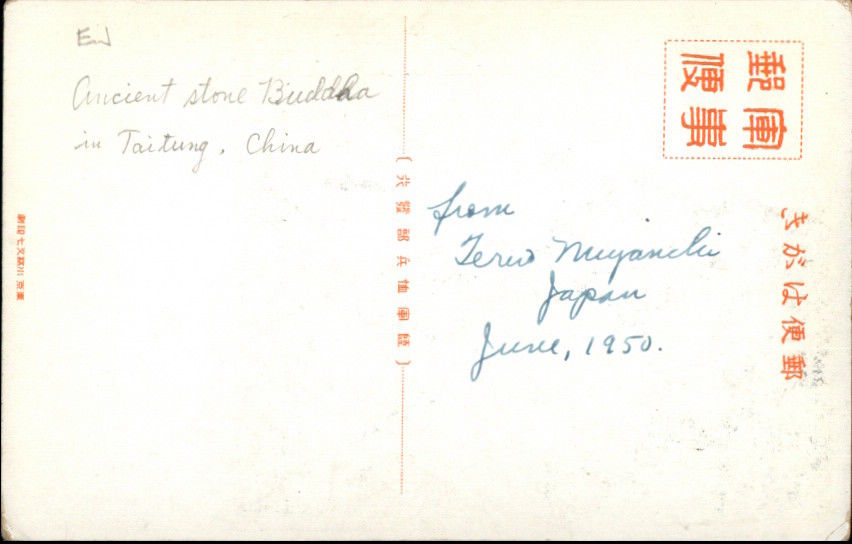 Ancient stone Buddha
in Taitung, China
軍事
郵便
郵便はがき
(陸軍恤兵部發行)
from
Teruo Miyauchi
Japan
June, 1950.